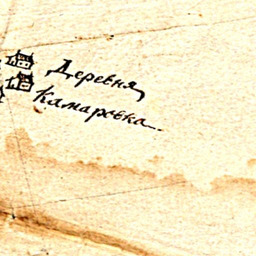 Деревня
Камаровка